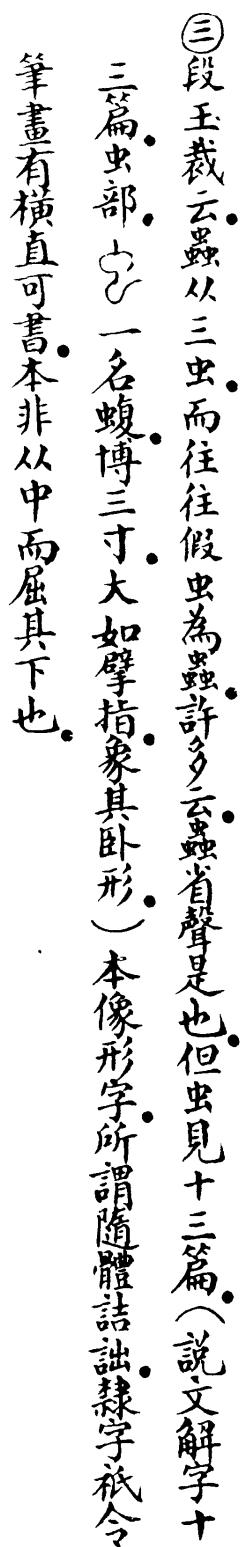 ㊂段玉裁云。蟲从三虫。而往往假虫為蟲。許多云。蟲省聲是也。但虫見十三篇。（說文解字十
三篇。虫部。一名蝮。博三寸。大如擘指。象其臥形。）本像形字。所謂隨體詰詘。隸字祇令
筆畫有橫直可書。本非从中而屈其下也。